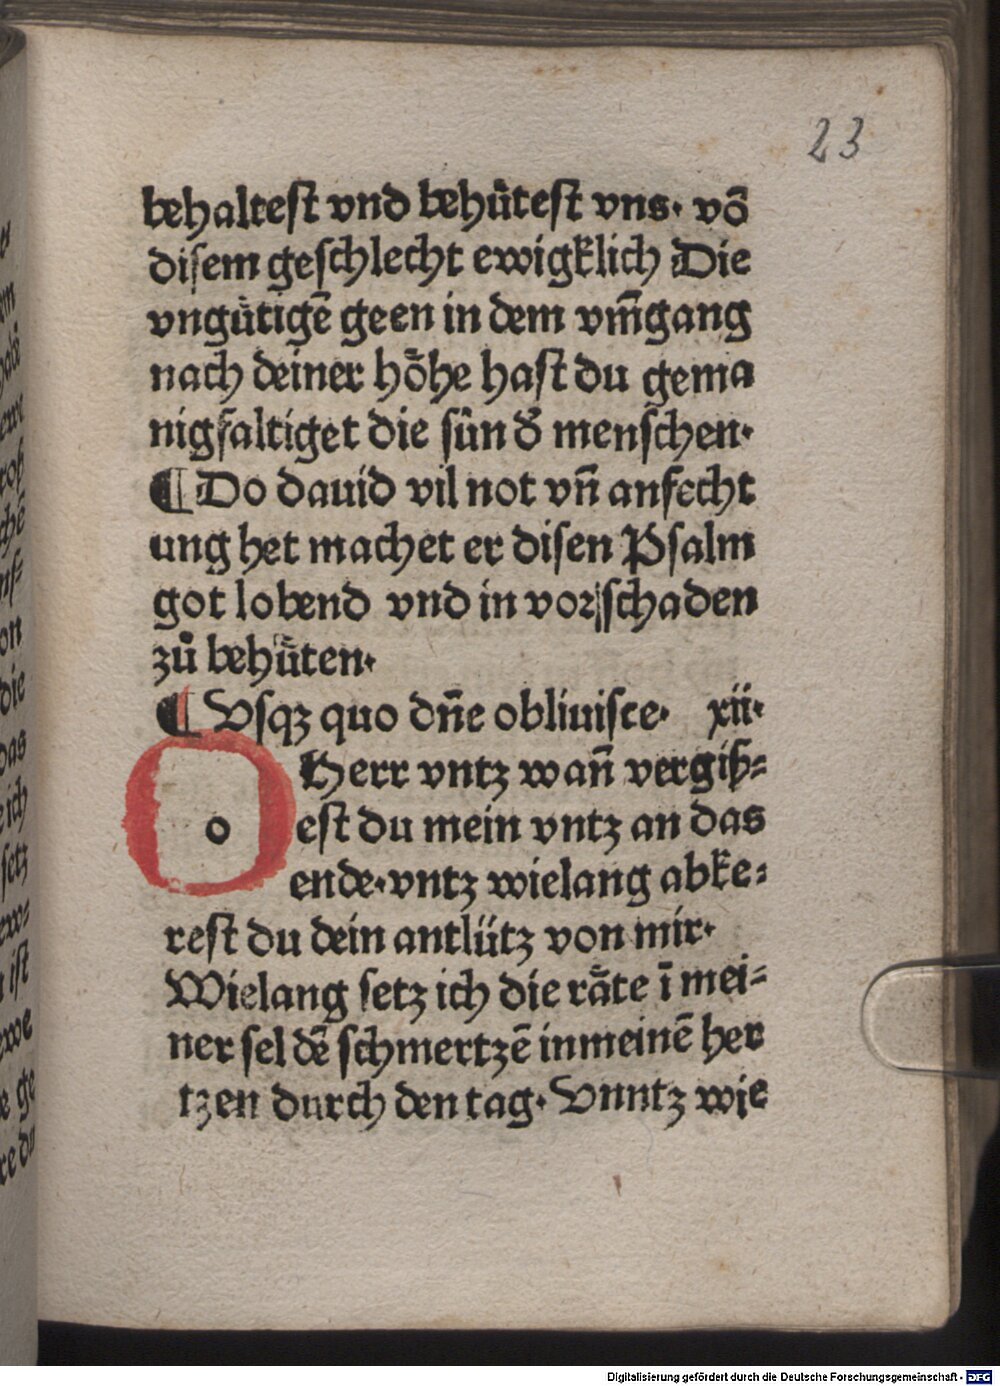 23
behaltest vnd behuͤtest vns· võ
disem geschlecht ewigklich Die
vnguͤtigẽ geen in dem vm̃gang
nach deiner hoͤhe hast du gema
nigfaltiget die sün dʼ menschen·
¶ Do dauid vil not vñ anfecht
ung het machet er disen Psalm
got lobend vnd in vor schaden
zuͦ behuͤten·
¶ Vsqꝫ quo dñe obliuisce· xii·
Herr vntz wañ vergiß⸗
o est du mein vntz an das
ende·vntz wielang abke⸗
rest du dein antlütz von mir·
Wielang setz ich die raͤte ĩ mei⸗
ner sel dẽ schmertzẽ inmeinẽ her
tzen durch den tag· Vnntz wie
Digitalisierung gefördert durch die Deutsche Forschungsgemeinschaft - DFG